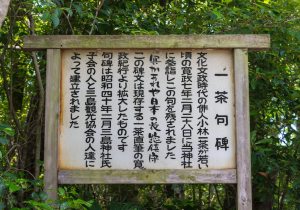 一茶句碑
文化文政時代の俳人小林一茶が若い
頃の寛政七年三月二十八日に当神社
に参詣しこの句を残されました
この碑文は現存する一茶直筆の寛
政紀行より拡大したものです
句碑は昭和四十年二月三島神社氏
子会の人と三島観光協会の人達に
よって建立されました